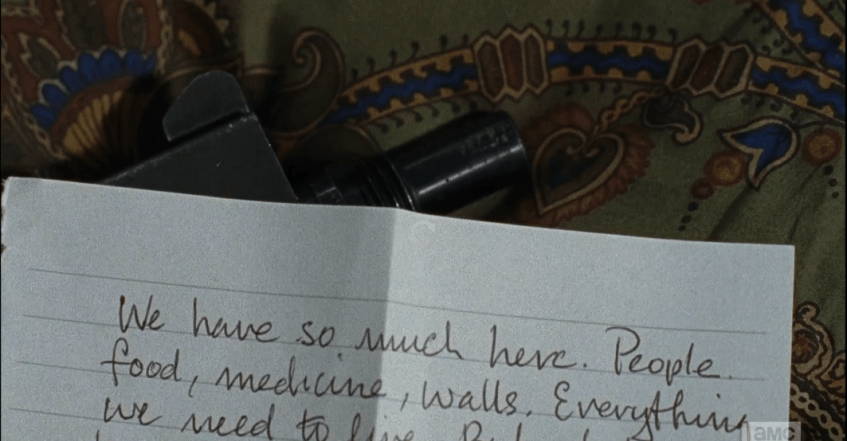 We have so much here. People.
food, medicine, walls. Everything
we need to live.
amc